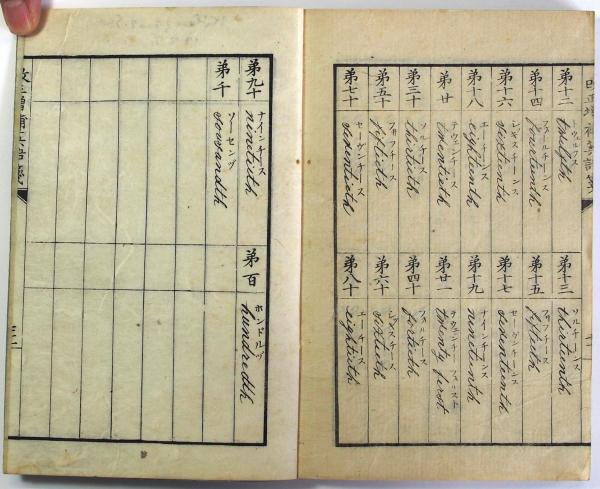 改正増補英語箋
弟十二
twelfth
弟十三
ソルチーンス
thirteenth
弟十四
fourteenth
弟十五
fiftieth
弟十六
シキスチーンス
sixteenth
弟十七
セーヴンチーンス
seventeenth
弟十八
エーチーンス
eighteenth
弟十九
ナインチーンス
nineteenth
弟廿
テウェンチース
twentieth
弟廿一
テウェンチ フィルスト
twenty first
弟三十
ソルチース
thirtieth
弟四十
フォルチース
fortieth
弟五十
フィフチース
fiftieth
弟六十
シキスチース
sixtieth
弟七十
セーヴンチース
seventieth
弟八十
エーチース
eightieth
弟九十
ナインチース
ninetieth
弟百
ホンドレルヅ
hundredth
弟千
ソーセンヅ
sousandth
改正増補英語箋